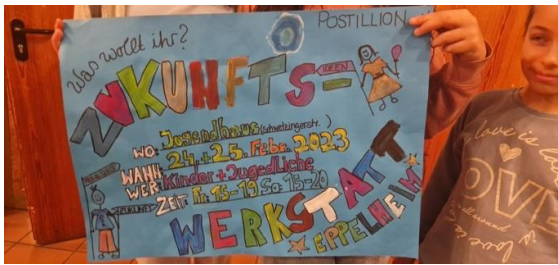 POSTILLION
Was wollt ihr?
ZUKUNFTS-
IDEEN
WO: Jugendhaus (Schwetzingerstr.)
WANN: 24.+25. Febr. 2023
WER: Kinder + Jugedliche
ZEIT: Fr. 15-19 Sa. 15-20
WERKSTATT
EPPELHEIM
love is
LOVE
love is